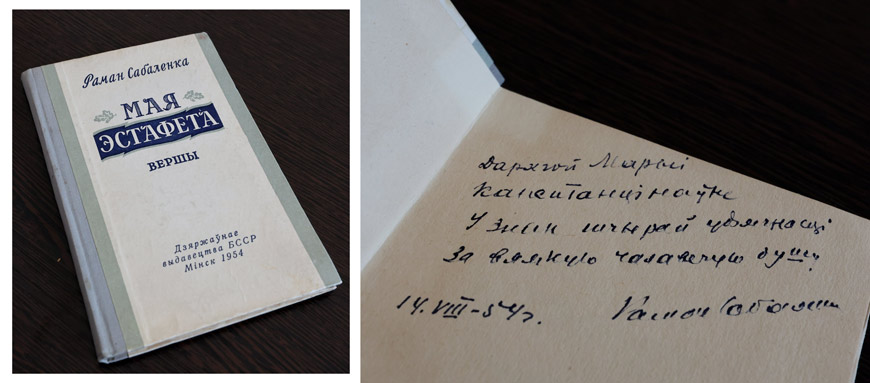 Раман Сабаленка
МАЯ
ЭСТАФЕТА
ВЕРШЫ
Дзяржаўнае
выдавецтва БССР
Мінск 1954
Дарагой Марыі
Канстанцінаўне
У знак шчырай удзячнасці
За вялікую чалавечую душу
14.VIII-54г. Раман Сабаленка